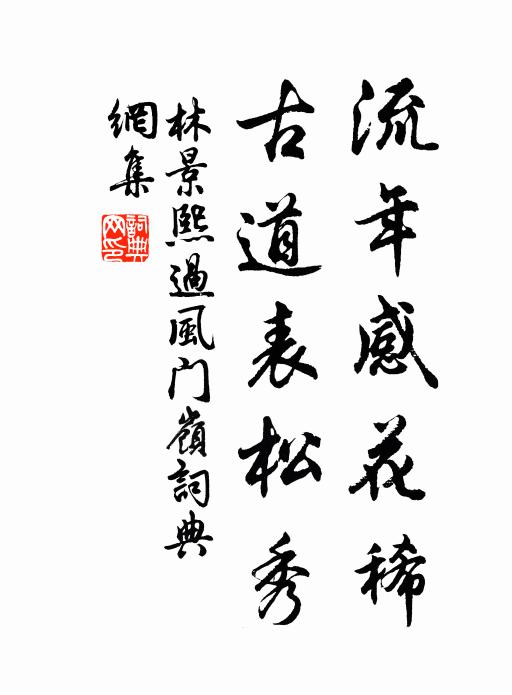 流年感花稀
古道表松秀
林景熙過風門嶺詞典
網集
詞典
网印